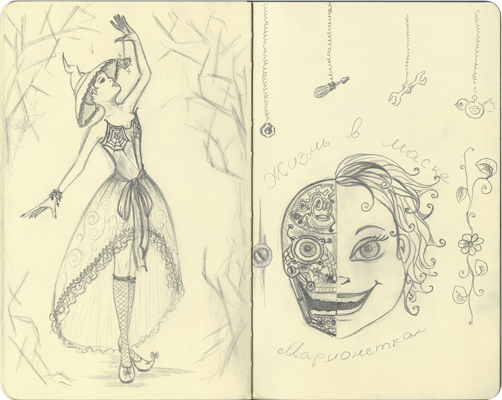 Жизнь в маске
Марионетка